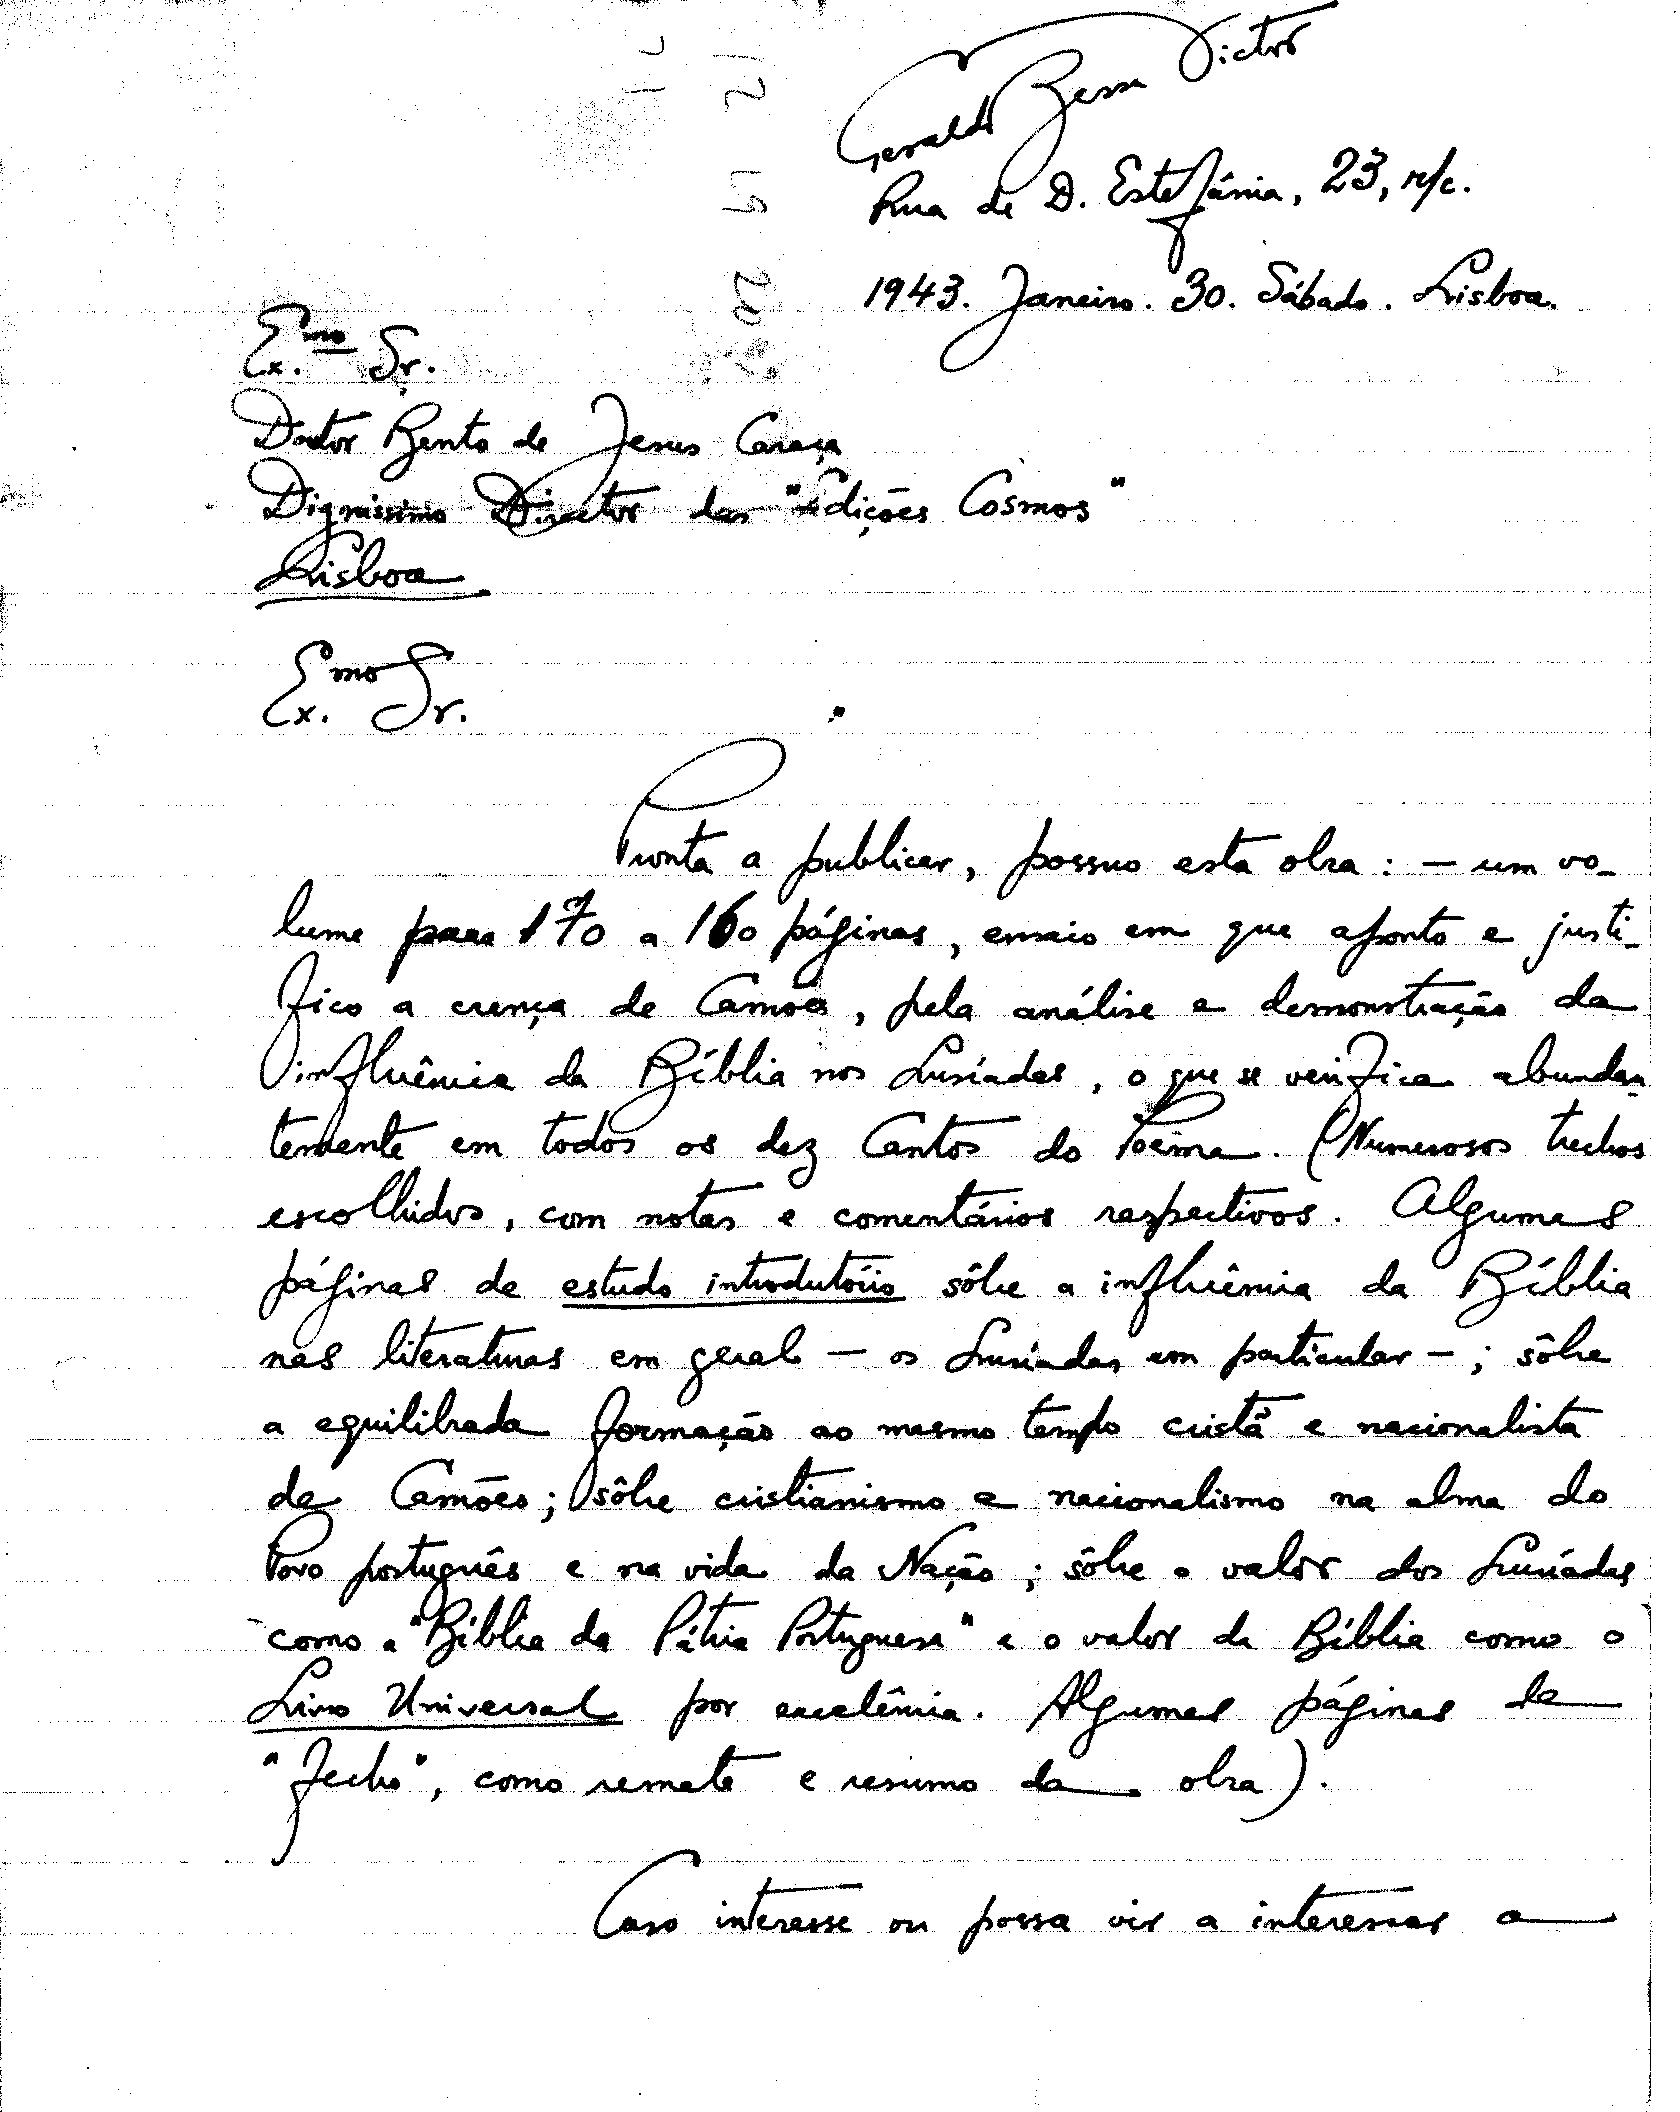 Geraldo Bessa Victor
Rua de D. Estefânia, 23, r/c.
1943. Janeiro. 30. Sábado. Lisboa.
Ex.mo Sr.
Doutor Bento de Jesus Caraça
Digníssimo Director das "Edições Cosmos"
Lisboa
Ex.mo Sr.
Pronta a publicar, possuo esta obra: — um vo-
lume para 170 a 160 páginas, ensaio em que aponto e justi-
fico a crença de Camões, pela análise e demonstração da
influência da Bíblia nos Lusíadas, o que se verifica abundan-
temente em todos os dez Cantos do Poema. (Numerosos trechos
escolhidos, com notas e comentários respectivos. Algumas
páginas de estudo introdutório sôbre a influência da Bíblia
nas literaturas em geral — os Lusíadas em particular —; sôbre
a equilibrada formação ao mesmo tempo cristã e nacionalista
de Camões; sôbre cristianismo e nacionalismo na alma do
Povo português e na vida da Nação; sôbre o valor dos Lusíadas
como a "Bíblia da Pátria Portuguesa" e o valor da Bíblia como o
Livro Universal por excelência. Algumas páginas de
"fecho", como remate e resumo da obra).
Caso interesse ou possa vir a interessar a